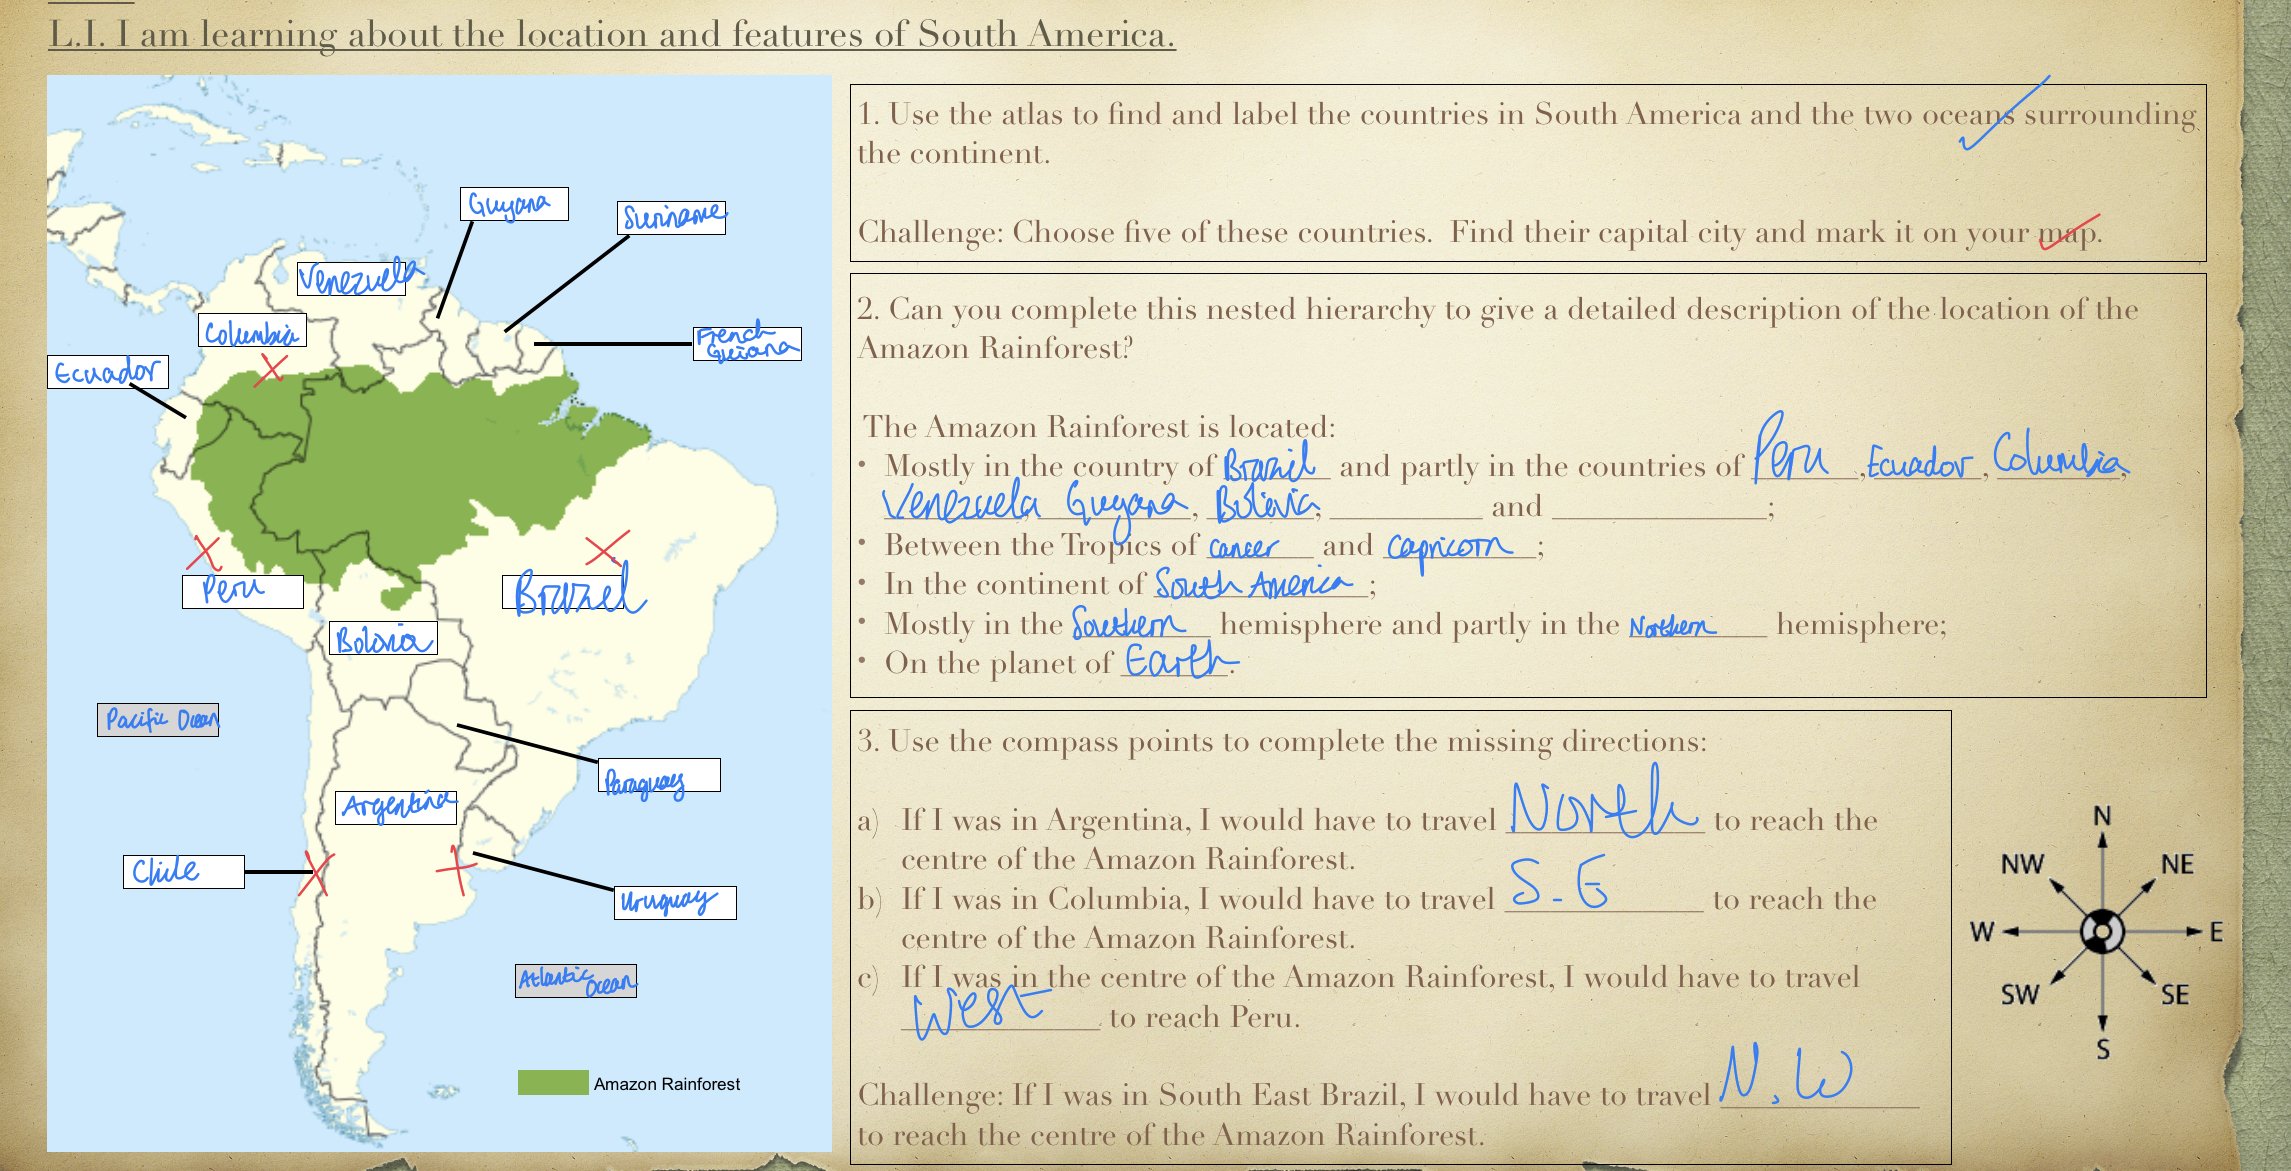 L.I. I am learning about the location and features of South America.
Guyana
Suriname
Venezuela
Columbia
French
Guiana
Ecuador
Peru
Brazil
Bolivia
Pacific Ocean
Paraguay
Argentina
Chile
Uruguay
Atlantic
Ocean
Amazon Rainforest
1. Use the atlas to find and label the countries in South America and the two oceans surrounding
the continent.
Challenge: Choose five of these countries. Find their capital city and mark it on your map.
2. Can you complete this nested hierarchy to give a detailed description of the location of the
Amazon Rainforest?
The Amazon Rainforest is located:
• Mostly in the country of Brazil and partly in the countries of Peru, Ecuador, Columbia,
Venezuela, Guyana, Bolivia, ____________ and ________________;
• Between the Tropics of cancer and capricorn;
• In the continent of South America;
• Mostly in the Southern hemisphere and partly in the Northern hemisphere;
• On the planet of Earth.
3. Use the compass points to complete the missing directions:
a) If I was in Argentina, I would have to travel North to reach the
centre of the Amazon Rainforest.
b) If I was in Columbia, I would have to travel S-E to reach the
centre of the Amazon Rainforest.
c) If I was in the centre of the Amazon Rainforest, I would have to travel
West to reach Peru.
Challenge: If I was in South East Brazil, I would have to travel N.W
to reach the centre of the Amazon Rainforest.
N
NW NE
W E
SW SE
S